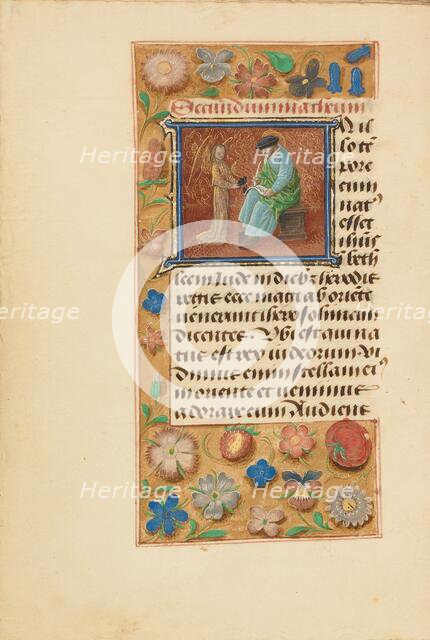 Secundum matheum
N il
lo tē
pore
cum
natꝰ
esset
ihūs
beth
leem iude in diebꝫ herodis
regis ecce magi ab oriēte
venerunt iherosolimam
dicentes. Vbi est qui na
tus est rex iudeorum. Vi
dimus enim stellam eiꝰ
in oriente et venimus
adorare eum. Audiens
Heritage
Heritage
Heritage
Heritage
Heritage
Heritage
Heritage
Heritage